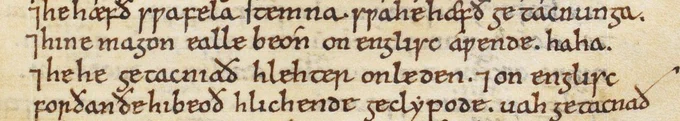 ⁊ he hæfð swa fela stemna. swa he hæfð getacnunga.
⁊ hi ne magon ealle beon̄ on englisc awende. haha.
⁊ hehe getacniað hlehter on leden. ⁊ on englisc
forðan ðe hi beoð hlichende geclypode. uah getacnað